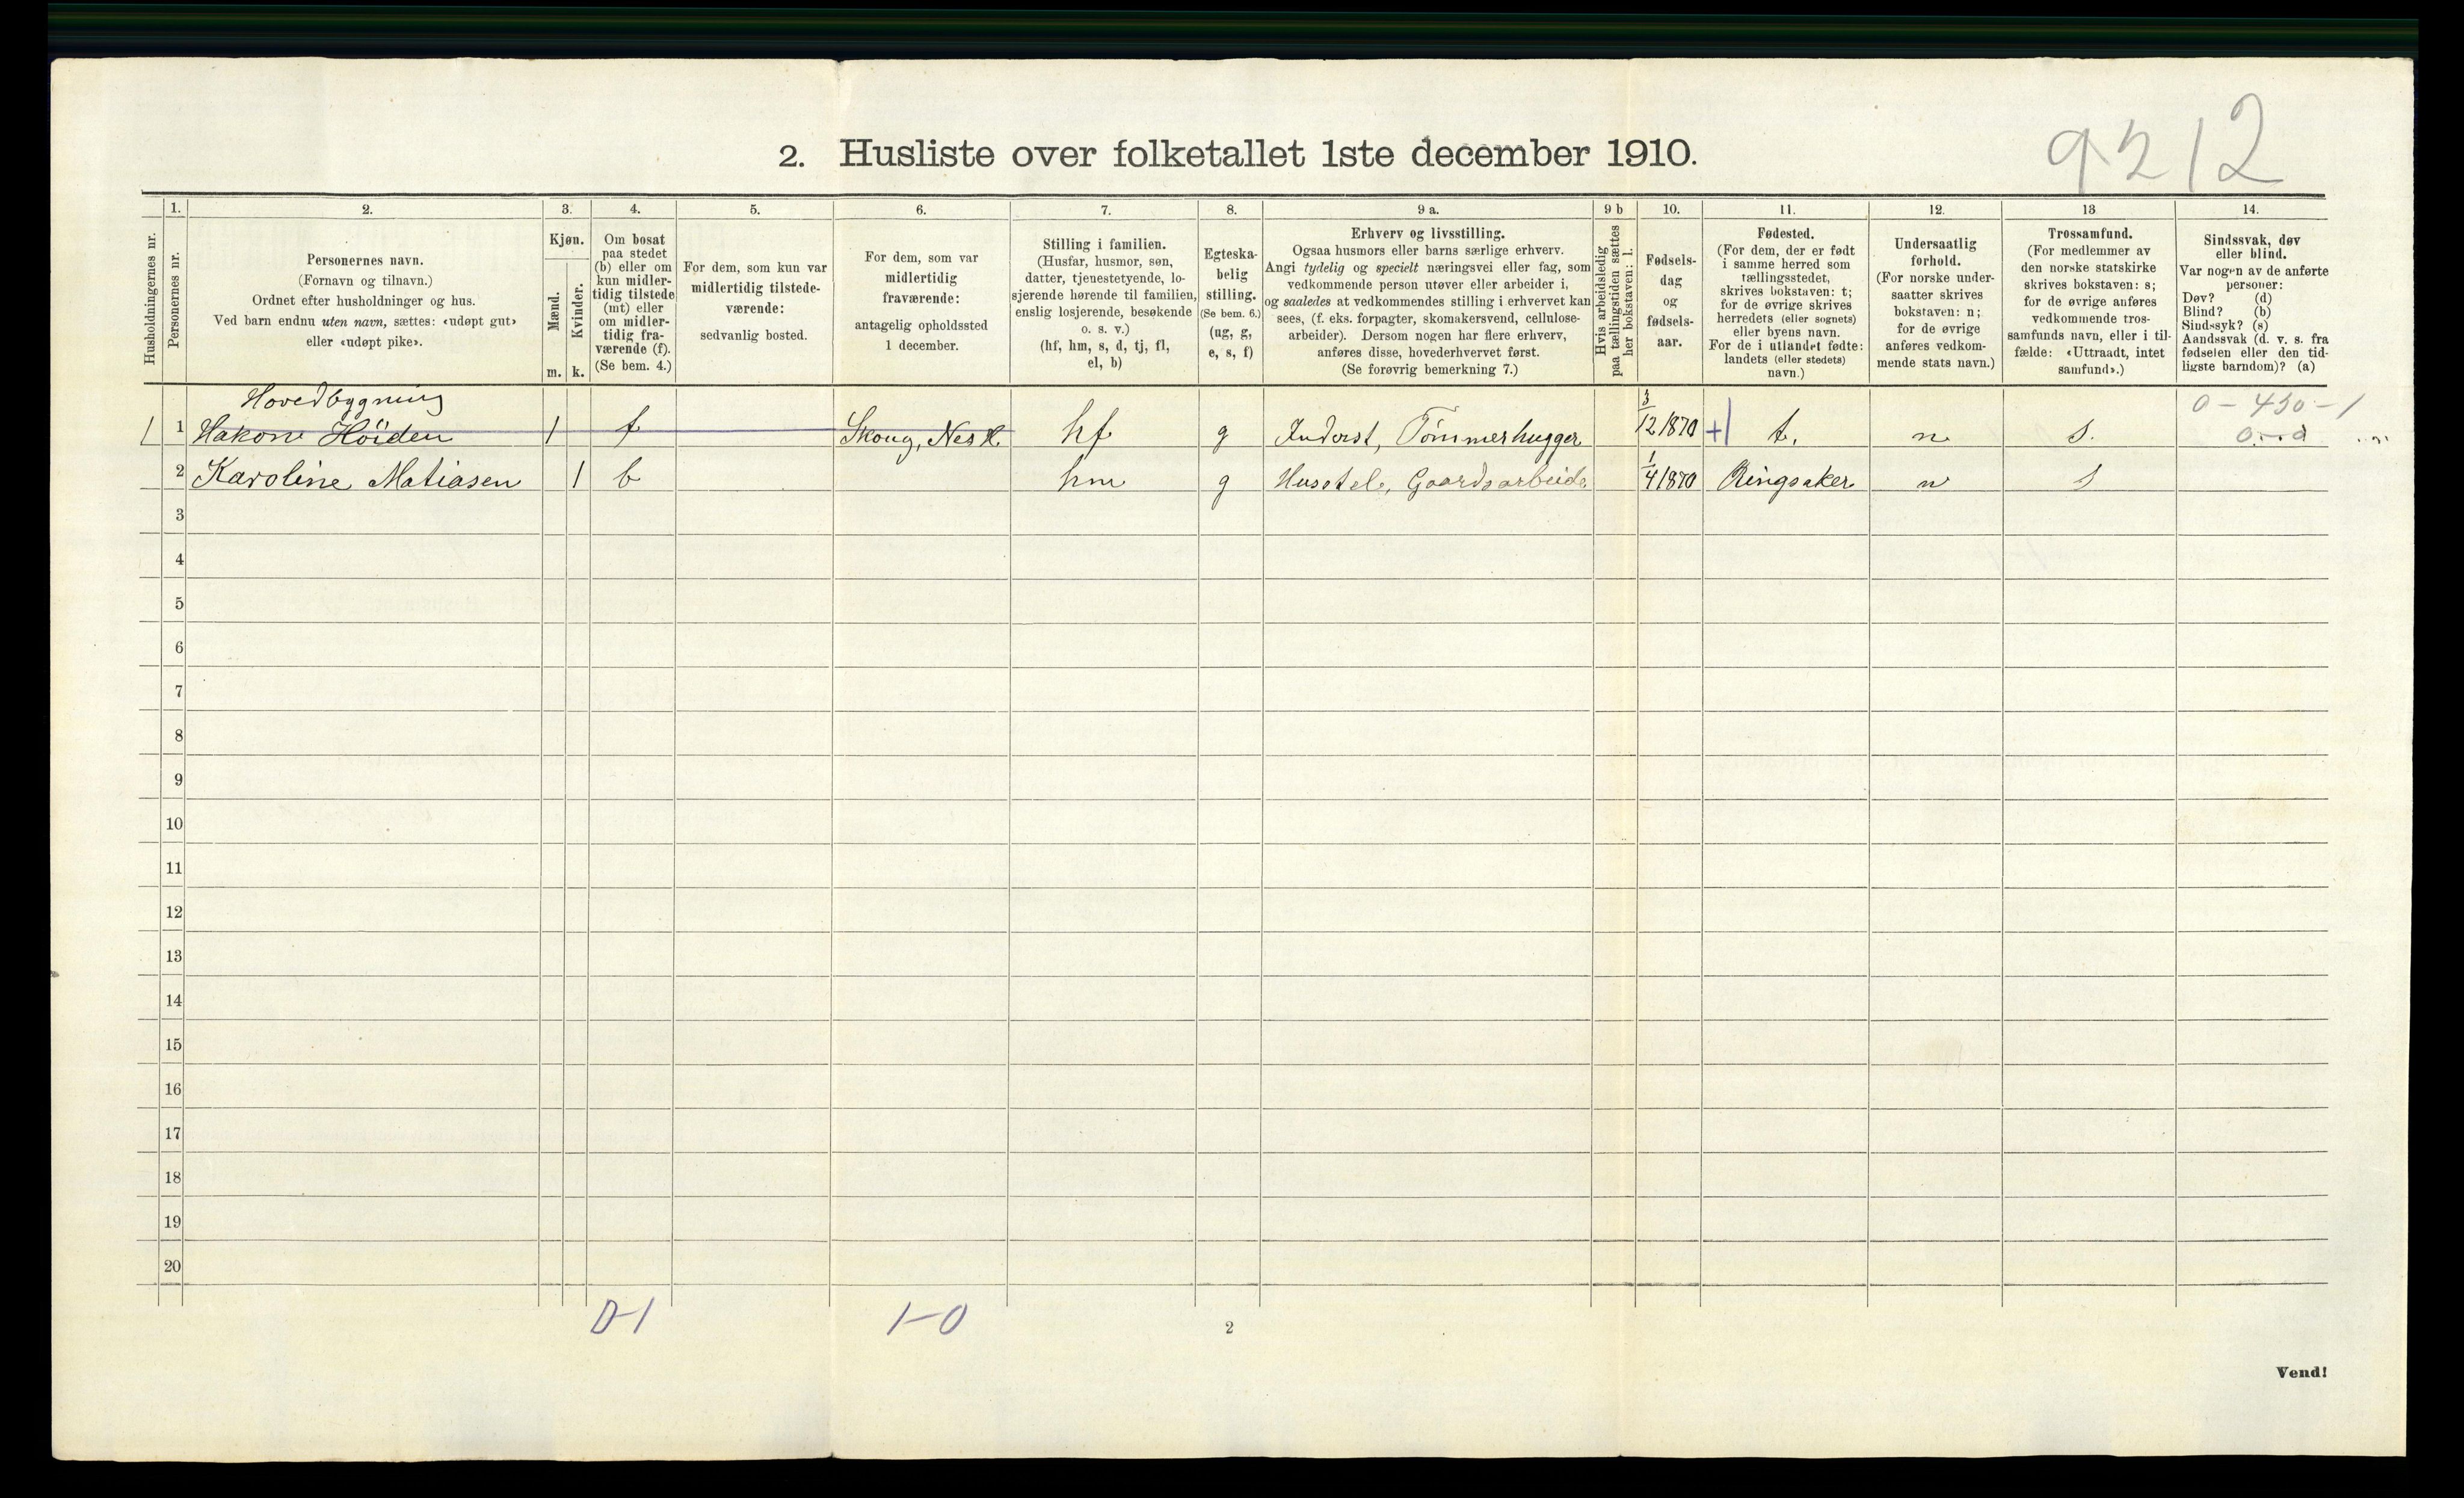 9212
2. Husliste over folketallet 1ste december 1910.
Husholdningernes nr.
1.
Personernes nr.
2.
Personernes navn.
(Fornavn og tilnavn.)
Ordnet efter husholdninger og hus.
Ved barn endnu uten navn, sættes: «udøpt gut»
eller «udøpt pike».
3.
Kjøn.
Mænd.
Kvinder.
m. k.
4.
Om bosat
paa stedet
(b) eller om
kun midler-
tidig tilstede
(mt) eller
om midler-
tidig fra-
værende (f).
(Se bem. 4.)
5.
For dem, som kun var
midlertidig tilstede-
værende:
sedvanlig bosted.
6.
For dem, som var
midlertidig
fraværende:
antagelig opholdssted
1 december.
7.
Stilling i familien.
(Husfar, husmor, søn,
datter, tjenestetyende, lo-
sjerende hørende til familien,
enslig losjerende, besøkende
o. s. v.)
(hf, hm, s, d, tj, fl,
el, b)
8.
Egteska-
belig
stilling.
(Se bem. 6.)
(ug, g,
e, s, f)
9 a.
Erhverv og livsstilling.
Ogsaa husmors eller barns særlige erhverv.
Angi tydelig og specielt næringsvei eller fag, som
vedkommende person utøver eller arbeider i,
og saaledes at vedkommendes stilling i erhvervet kan
sees, (f. eks. forpagter, skomakersvend, cellulose-
arbeider). Dersom nogen har flere erhverv,
anføres disse, hovederhvervet først.
(Se forøvrig bemerkning 7.)
9 b
Hvis arbeidsledig
paa tællingstiden sættes
her bokstaven: l.
10.
Fødsels-
dag
og
fødsels-
aar.
11.
Fødested.
(For dem, der er født
i samme herred som
tællingsstedet,
skrives bokstaven: t;
for de øvrige skrives
herredets (eller sognets)
eller byens navn.
For de i utlandet fødte:
landets (eller stedets)
navn.)
12.
Undersaatlig
forhold.
(For norske under-
saatter skrives
bokstaven: n;
for de øvrige
anføres vedkom-
mende stats navn.)
13
Trossamfund.
(For medlemmer av
den norske statskirke
skrives bokstaven: s;
for de øvrige anføres
vedkommende tros-
samfunds navn, eller i til-
fælde: «Uttraadt, intet
samfund».)
14.
Sindssvak, døv
eller blind.
Var nogen av de anførte
personer:
Døv? (d)
Blind? (b)
Sindssyk? (s)
Aandssvak (d. v. s. fra
fødselen eller den tid-
ligste barndom)? (a)
Hovedbygning
0 - 450 - 1
1 1 Hakon Höiden 1 f Skoug, Nes H. hf g Inderst, Tömmerhugger 3/12 1870 +1 t. n s.
2 Karoline Matiasen 1 b hm g Husstel, Gaardsarbeide 1/4 1870 Ringsaker n s
3
4
5
6
7
8
9
10
11
12
13
14
15
16
17
18
19
20
0-1 1-0
2
Vend!